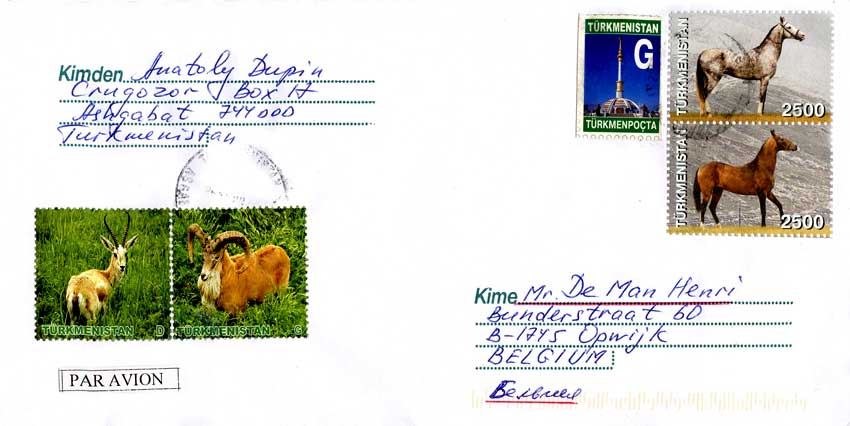 Kimden Anatoly Dupin
Crugozor Box 17
Ashgabat 744000
Turkmenistan
TÜRKMENISTAN
G
TÜRKMENPOÇTA
TÜRKMENISTAN
2500
TÜRKMENISTAN
2500
TÜRKMENISTAN D
TÜRKMENISTAN G
PAR AVION
Kime Mr. De Man Henri
Bunderstraat 60
B-1745 Opwijk
BELGIUM
Бельгия